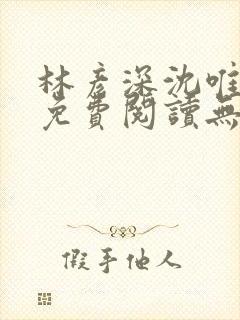 林彥深沈唯
免費閱讀無
假手他人